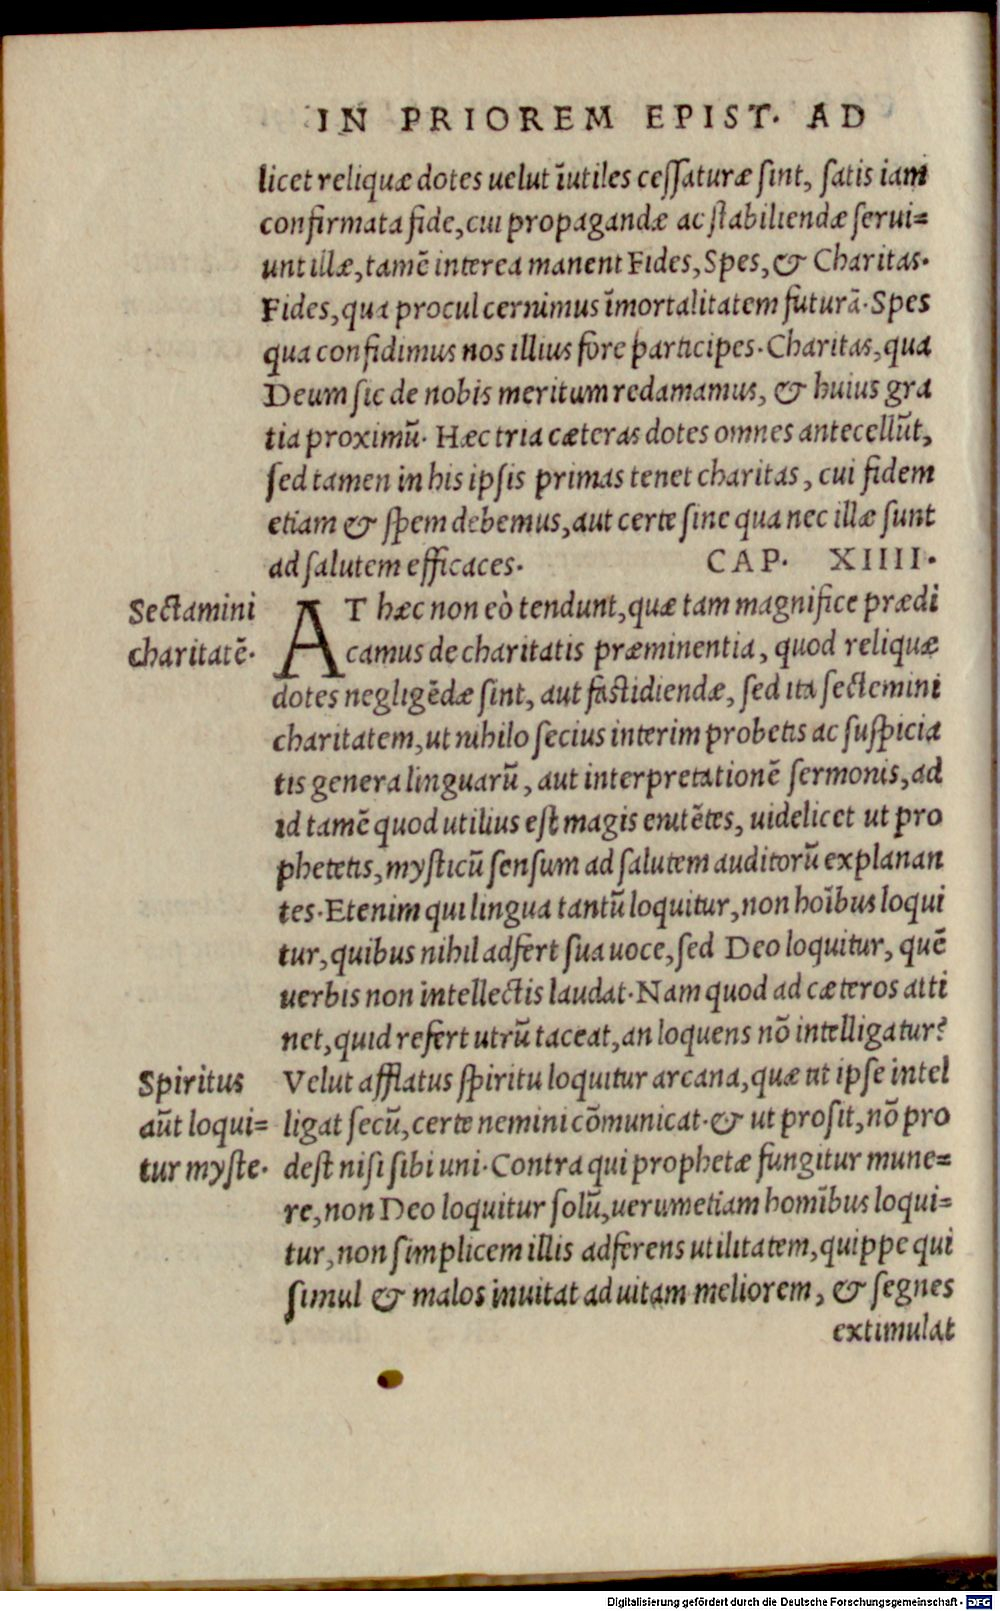 IN PRIOREM EPIST. AD
licet reliquæ dotes uelut īutiles ceſſaturæ ſint, ſatis iam
confirmata fide, cui propagandæ ac ſtabiliendæ ſerui=
unt illæ, tamē interea manent Fides, Spes, & Charitas.
Fides, qua procul cernimus īmortalitatem futurā. Spes
qua confidimus nos illius fore participes. Charitas, qua
Deum ſic de nobis meritum redamamus, & huius gra
tia proximū. Hæc tria cæteras dotes omnes antecellūt,
ſed tamen in his ipſis primas tenet charitas, cui fidem
etiam & ſpem debemus, aut certe ſine qua nec illæ ſunt
ad ſalutem efficaces. CAP. XIIII.
Sectamini
charitatē.
AT hæc non eò tendunt, quæ tam magnifice prædi
camus de charitatis præminentia, quod reliquæ
dotes negligēdæ ſint, aut faſtidiendæ, ſed ita ſectemini
charitatem, ut nihilo ſecius interim probetis ac ſuſpicia
tis genera linguarū, aut interpretationē ſermonis, ad
id tamē quod utilius eſt magis enitētes, uidelicet ut pro
phetetis, myſticū ſenſum ad ſalutem auditorū explanan
tes. Etenim qui lingua tantū loquitur, non hoībus loqui
tur, quibus nihil adfert ſua uoce, ſed Deo loquitur, quē
uerbis non intellectis laudat. Nam quod ad cæteros atti
net, quid refert utrū taceat, an loquens nō intelligatur?
Spiritus
aūt loqui=
tur myſte.
Velut afflatus ſpiritu loquitur arcana, quæ ut ipſe intel
ligat ſecū, certe nemini cōmunicat. & ut proſit, nō pro
deſt niſi ſibi uni. Contra qui prophetæ fungitur mune=
re, non Deo loquitur ſolū, uerumetiam homībus loqui=
tur, non ſimplicem illis adferens utilitatem, quippe qui
ſimul & malos inuitat ad uitam meliorem, & ſegnes
extimulat
Digitalisierung gefördert durch die Deutsche Forschungsgemeinschaft - DFG